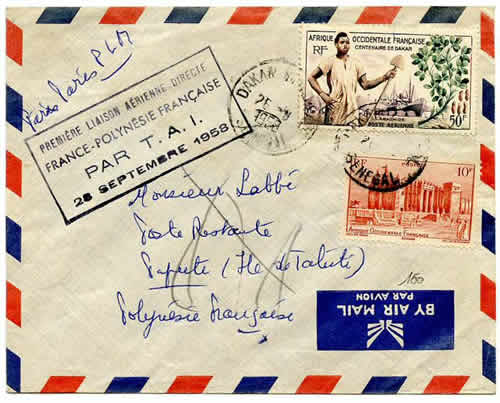 Via Paris PLM
PREMIÈRE LIAISON AÉRIENNE DIRECTE
FRANCE-POLYNÉSIE FRANÇAISE
PAR T.A.I.
28 SEPTEMBRE 1958
AFRIQUE OCCIDENTALE FRANÇAISE
CENTENAIRE DE DAKAR
RF
L'ARACHIDE
POSTE AÉRIENNE
50F
DAKAR
25
SÉNÉGAL
RF
10F
AFRIQUE OCCIDENTALE FRANÇAISE
Monsieur Labbé
Poste Restante
Papeete (Ile de Tahiti)
Polynésie française
150
BY AIR MAIL
PAR AVION